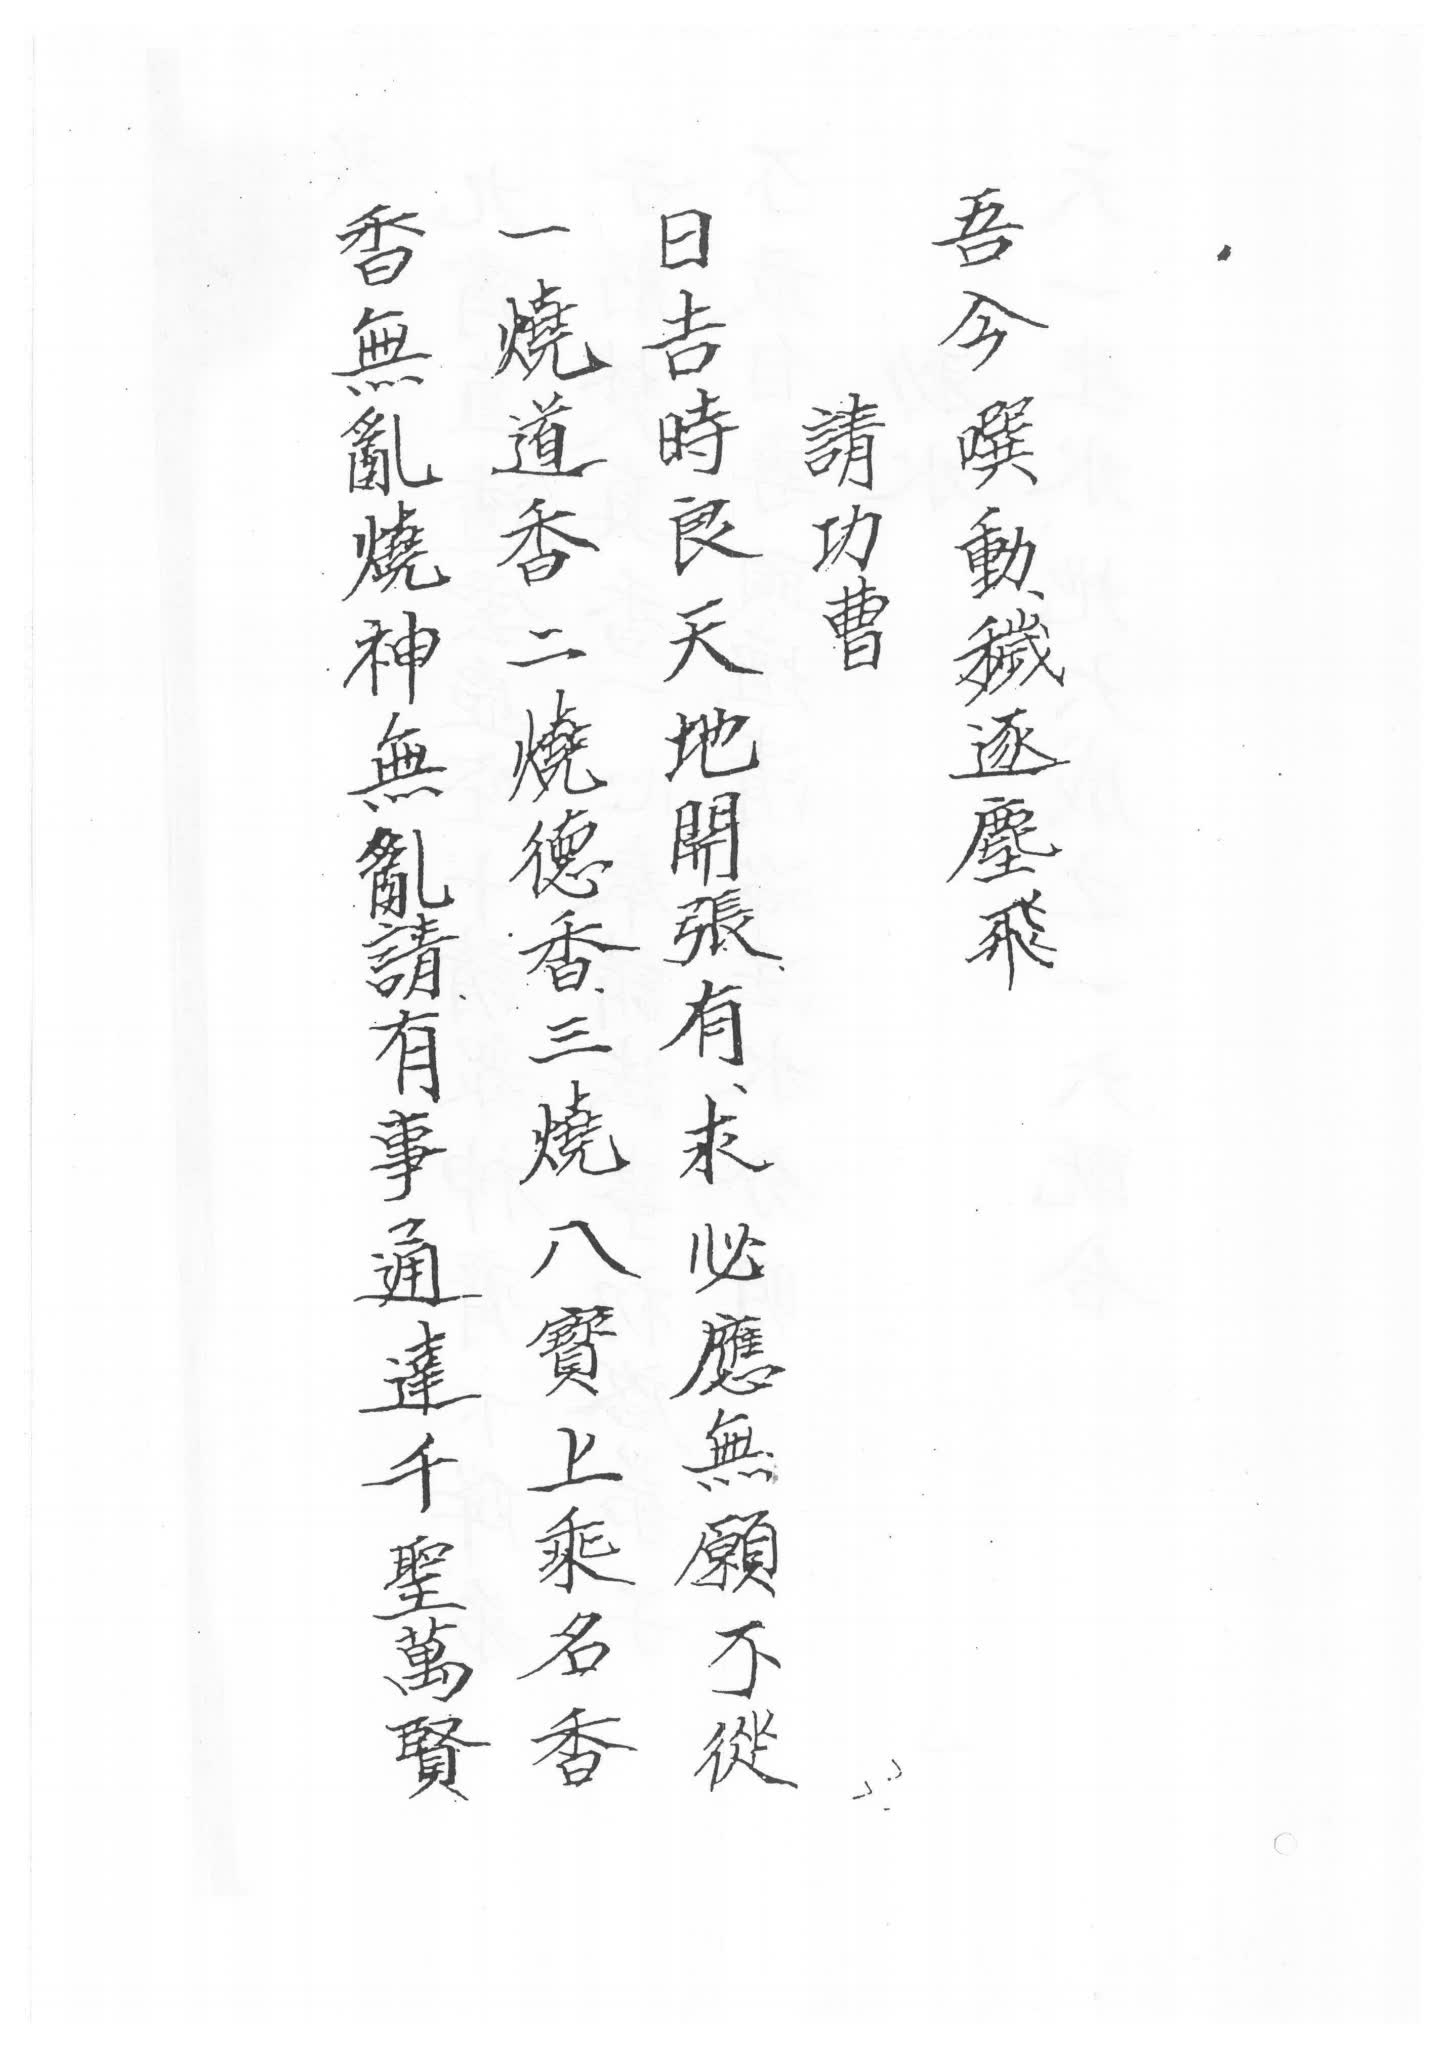 吾今噀動穢逐塵飛
請功曹
日吉時良天地開張有求必應無願不從
一燒道香二燒德香三燒八寶上乘名香
香無亂燒神無亂請有事通達千聖萬賢